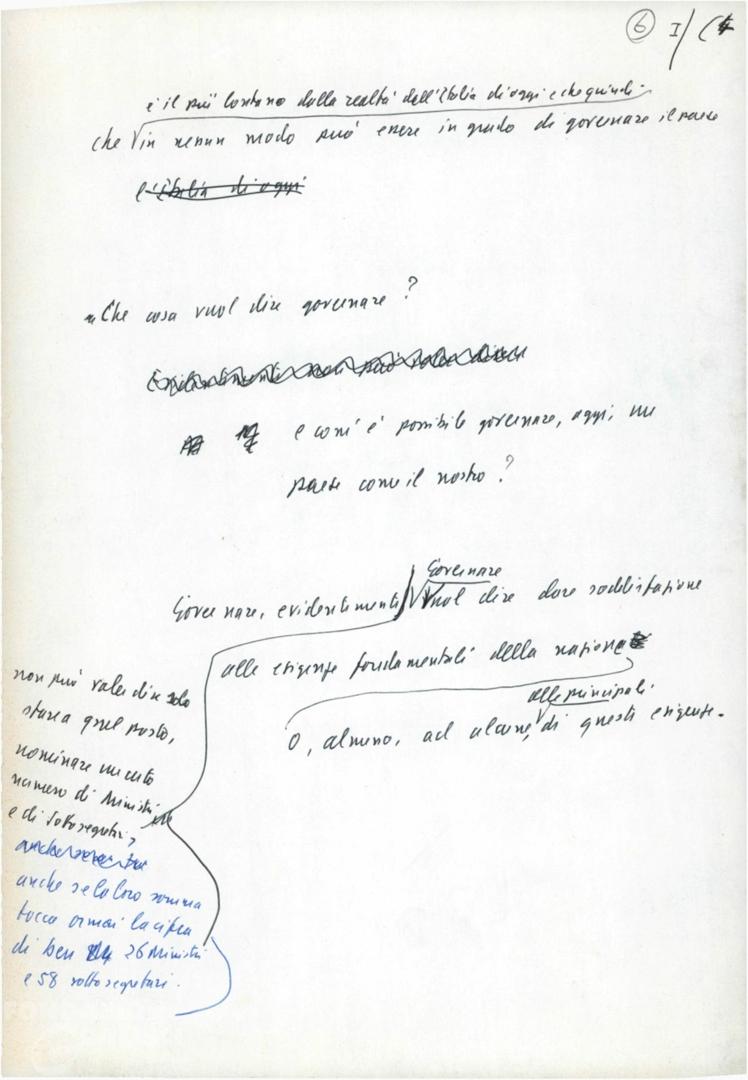 6 I/C
è il più lontano dalla realtà dell'Italia di oggi e che quindi
che in nessun modo può essere in grado di governare il paese
l'Italia di oggi
Che cosa vuol dire governare?
e com'è possibile governare, oggi, un
paese come il nostro?
Governare
Governare, evidentemente vuol dire dare soddisfazione
alle esigenze fondamentali della nazione
non può voler dire solo
stare a quel posto,
nominare un certo
numero di Ministri
e di Sottosegretari,
anche se la loro somma
tocca ormai la cifra
di ben 26 Ministri
e 58 sottosegretari.
alle principali
O, almeno, ad alcune, di questi esigenze.